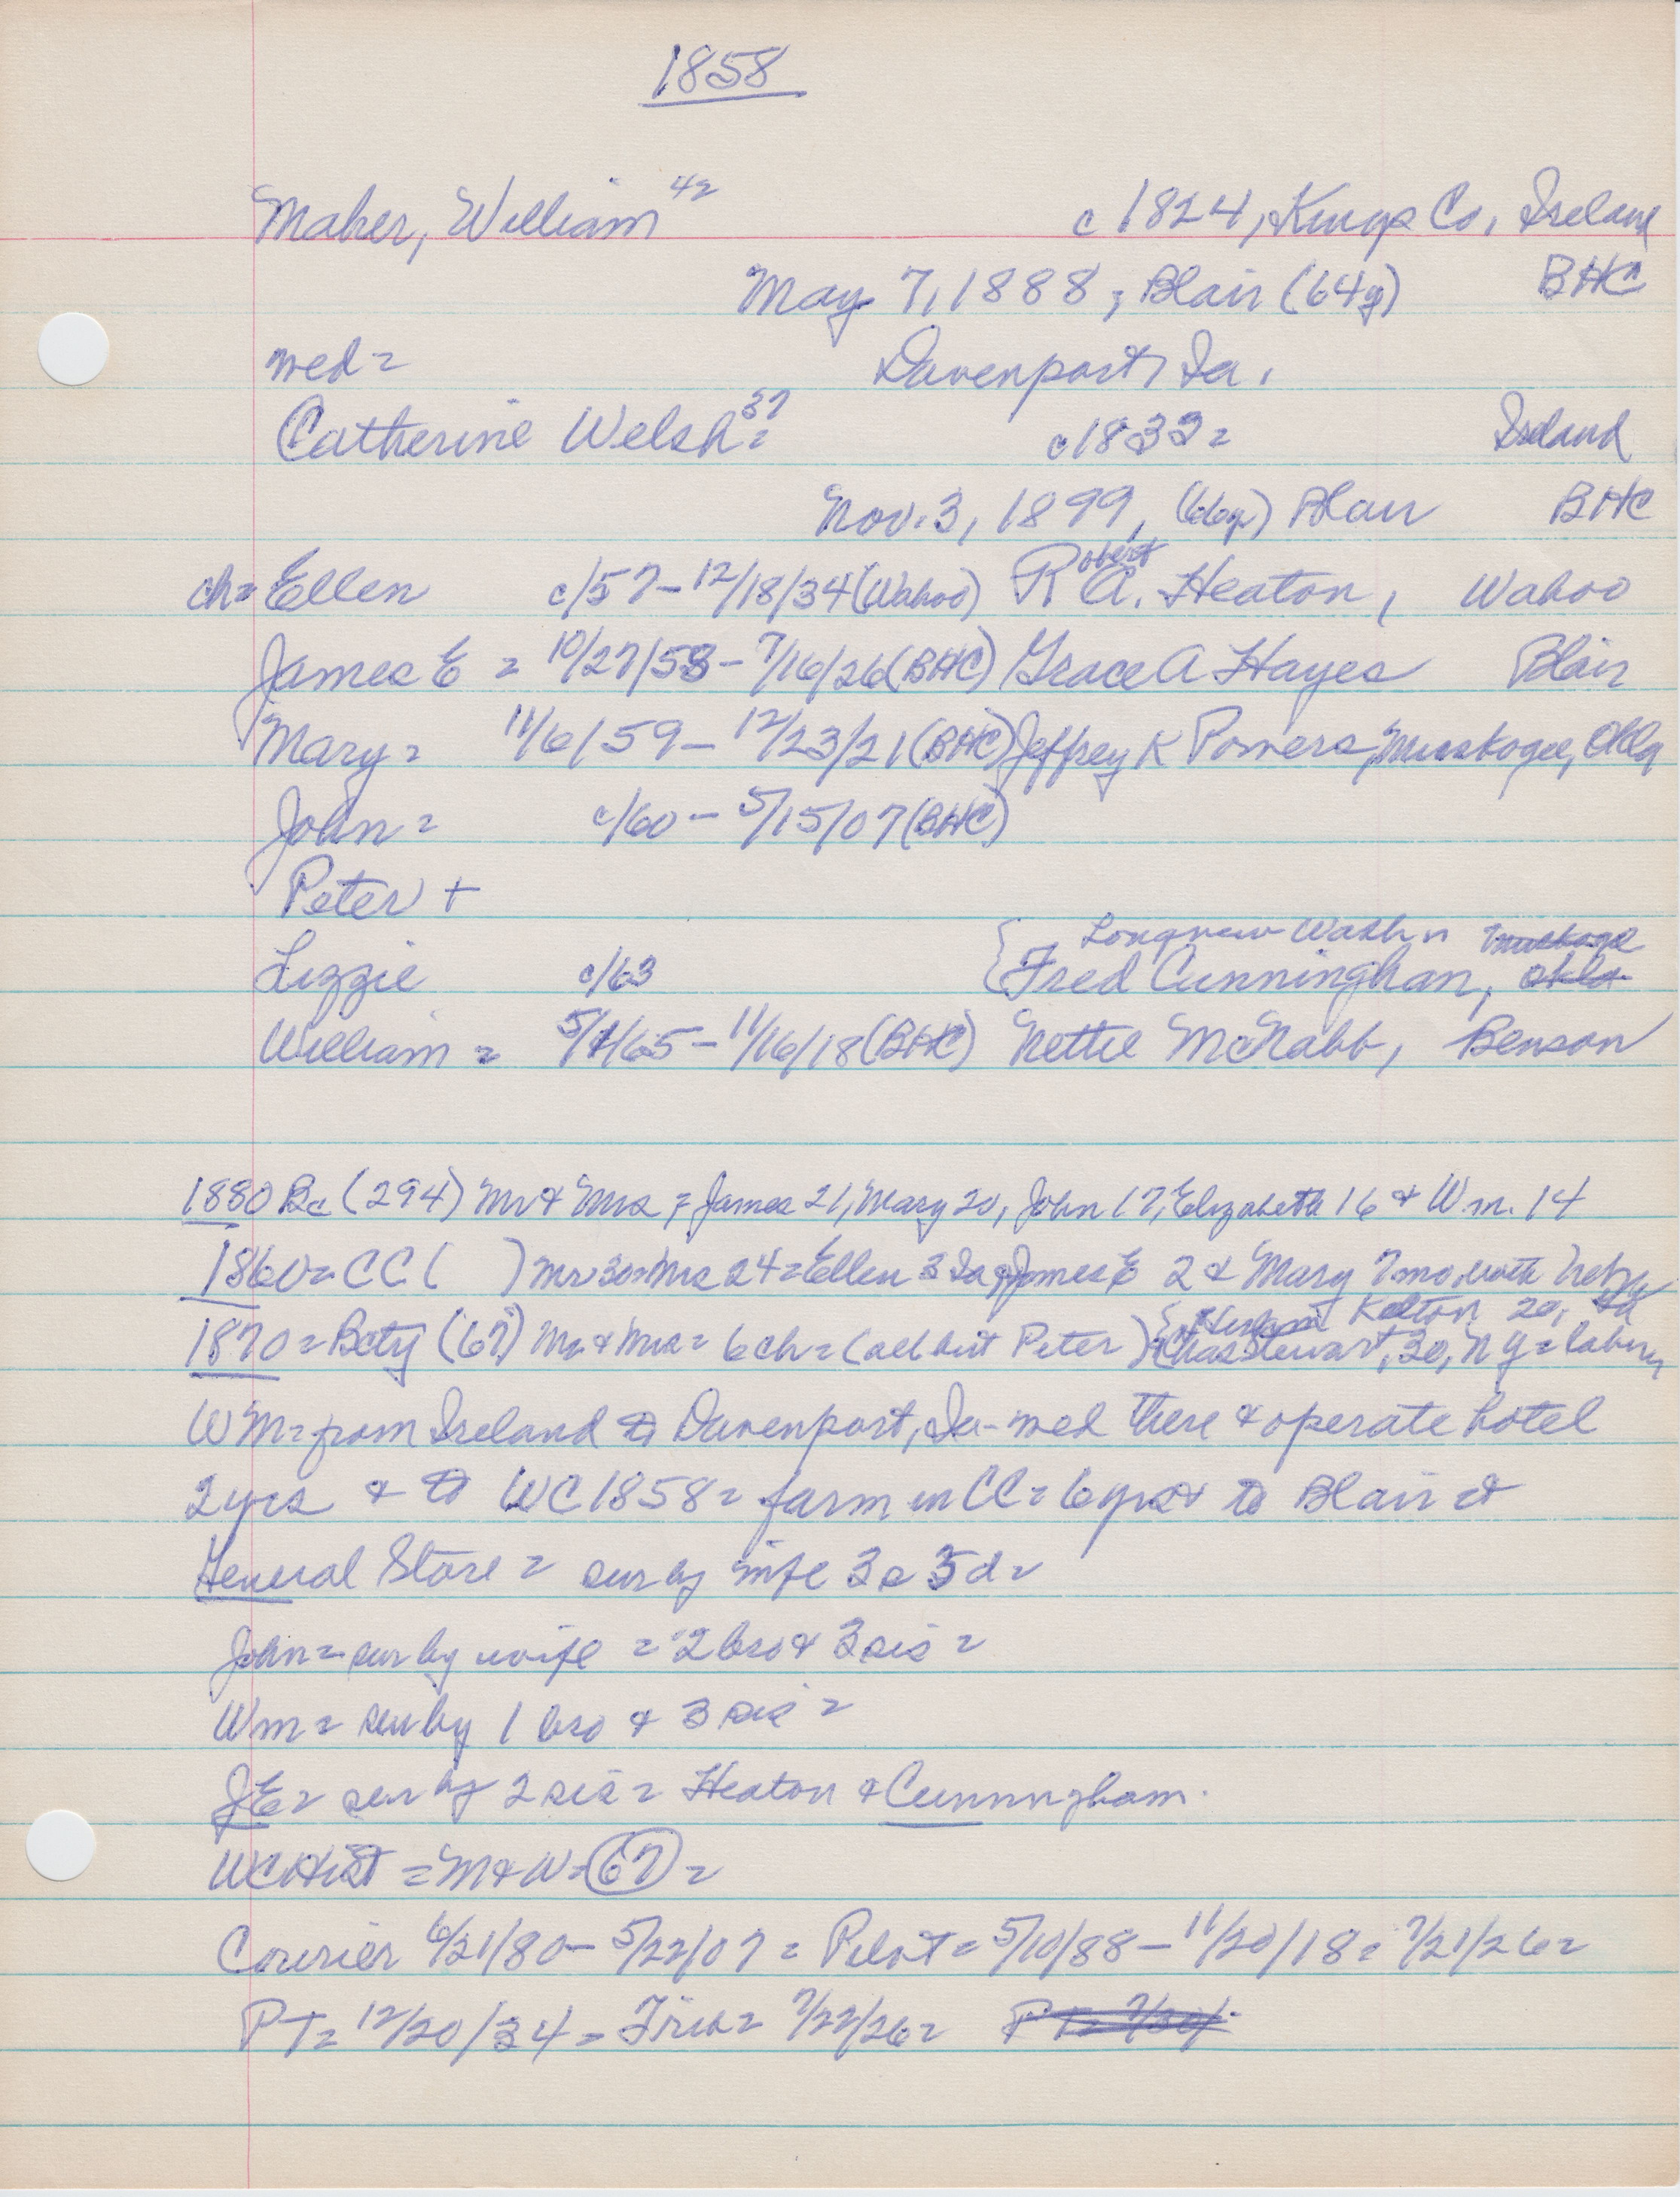 1858
Maher, William 42 c 1824, Kings Co, Ireland
May 7, 1888, Blair (64y) BHC
wed = Davenport, Ia.
Catherine Welsh = 37 c 1833 = Ireland
Nov. 3, 1899, (66y) Blair BHC
ch = Ellen c/57 - 12/18/34 (Wahoo) Robert A. Heaton, Wahoo
James E = 10/27/58 - 7/16/26 (BHC) Grace A Hayes Blair
Mary = 11/6/59 - 12/23/21 (BHC) Jeffrey K Powers, Muskogee, Okla
John = c/60 - 5/15/07 (BHC)
Peter +
Longview Wash n Muskogee
Lizzie c/63 Fred Cunningham, Okla
William = 5/1/65 - 11/16/18 (BHC) Nettie McNabb, Benson
1880 Bc (294) Mr & Mrs = James 21, Mary 20, John 17, Elizabeth 16 & Wm. 14
1860 = CC ( ) Mr 30 = Mrs 24 = Ellen 3 Ia & James E 2 & Mary 7 mo, both Neb
Kelton 20,
1870 = Bcty (67) Mr & Mrs = 6 ch = (all but Peter) Chas Stewart, 30, N Y = labor
WM = from Ireland to Davenport, Ia - wed there & operate hotel
2 yrs & to WC 1858 = farm in CC = 6 yrs & to Blair &
General Store = sur by wife 3 s 3 d =
John = sur by wife = 2 bro & 3 sis =
Wm = sur by 1 bro & 3 sis =
JE = sur by 2 sis = Heaton & Cunningham.
WC Hist = M & W = 67 =
Courier 6/21/80 - 5/22/07 = Pilot = 5/10/88 - 11/20/18 = 7/21/26 =
PT = 12/20/34 = Trib = 7/22/26 =